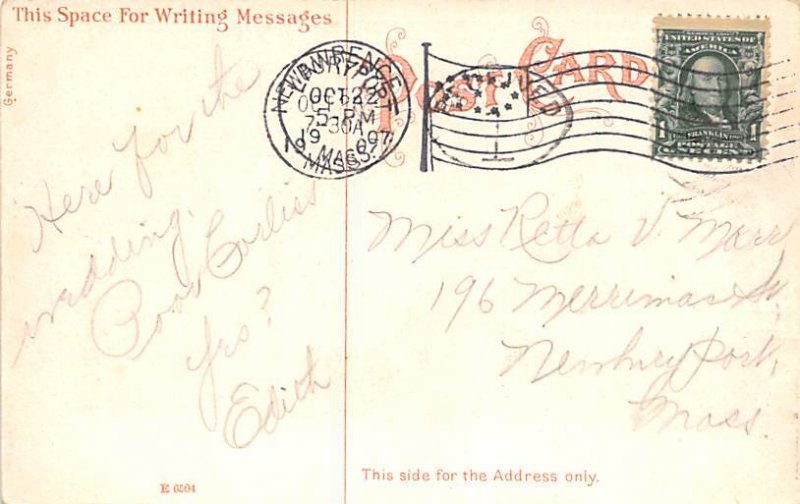 This Space For Writing Messages
Germany
Here for the
wedding.
Poor Corliss
Yrs?
Edith
E 6504
POST CARD
LAWRENCE
NEWBURYPORT
OCT 22
5 PM
7 30A
1907
MASS.
RECEIVED
UNITED STATES OF
AMERICA
1 FRANKLIN 1
POSTAGE
Miss Retta V. Marr
196 Merrimac St,
Newbury Port,
Mass.
This side for the Address only.